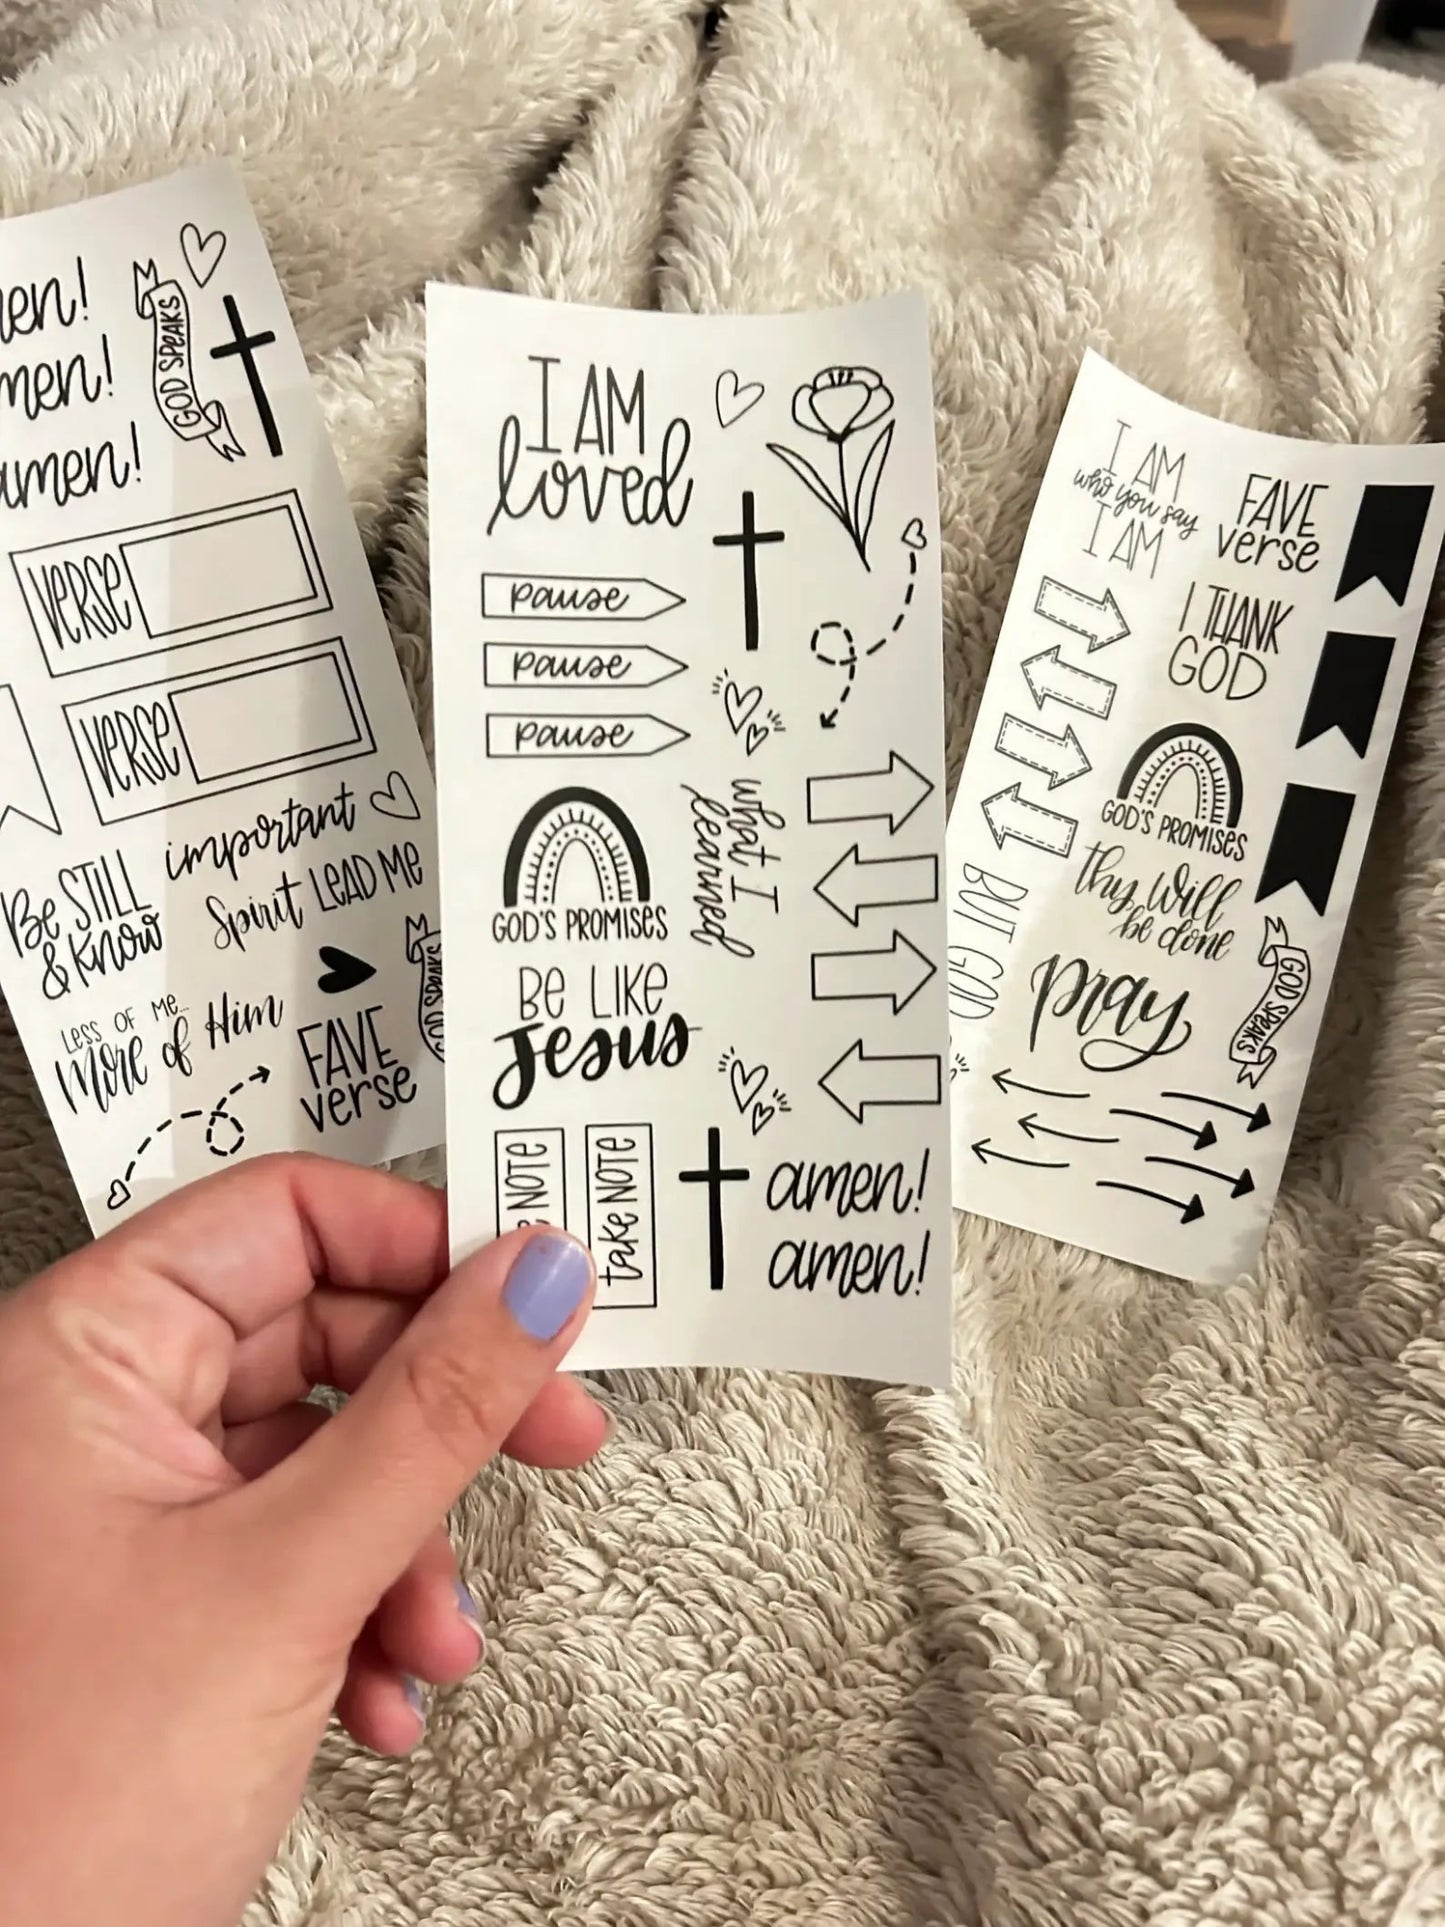 amen!
GOD SPEAKS
VERSE
VERSE
important
Be STILL
& KNOW
Spirit LEAD ME
LESS OF ME...
MORE of Him
GOD SPEAKS
FAVE
verse
I AM
loved
pause
pause
pause
what I
learned
GOD'S PROMISES
BE LIKE
Jesus
NOTE
take NOTE
amen!
amen!
I AM
who you say
I AM
FAVE
verse
I THANK
GOD
GOD'S PROMISES
thy will
be done
BUT GOD
pray
GOD SPEAKS